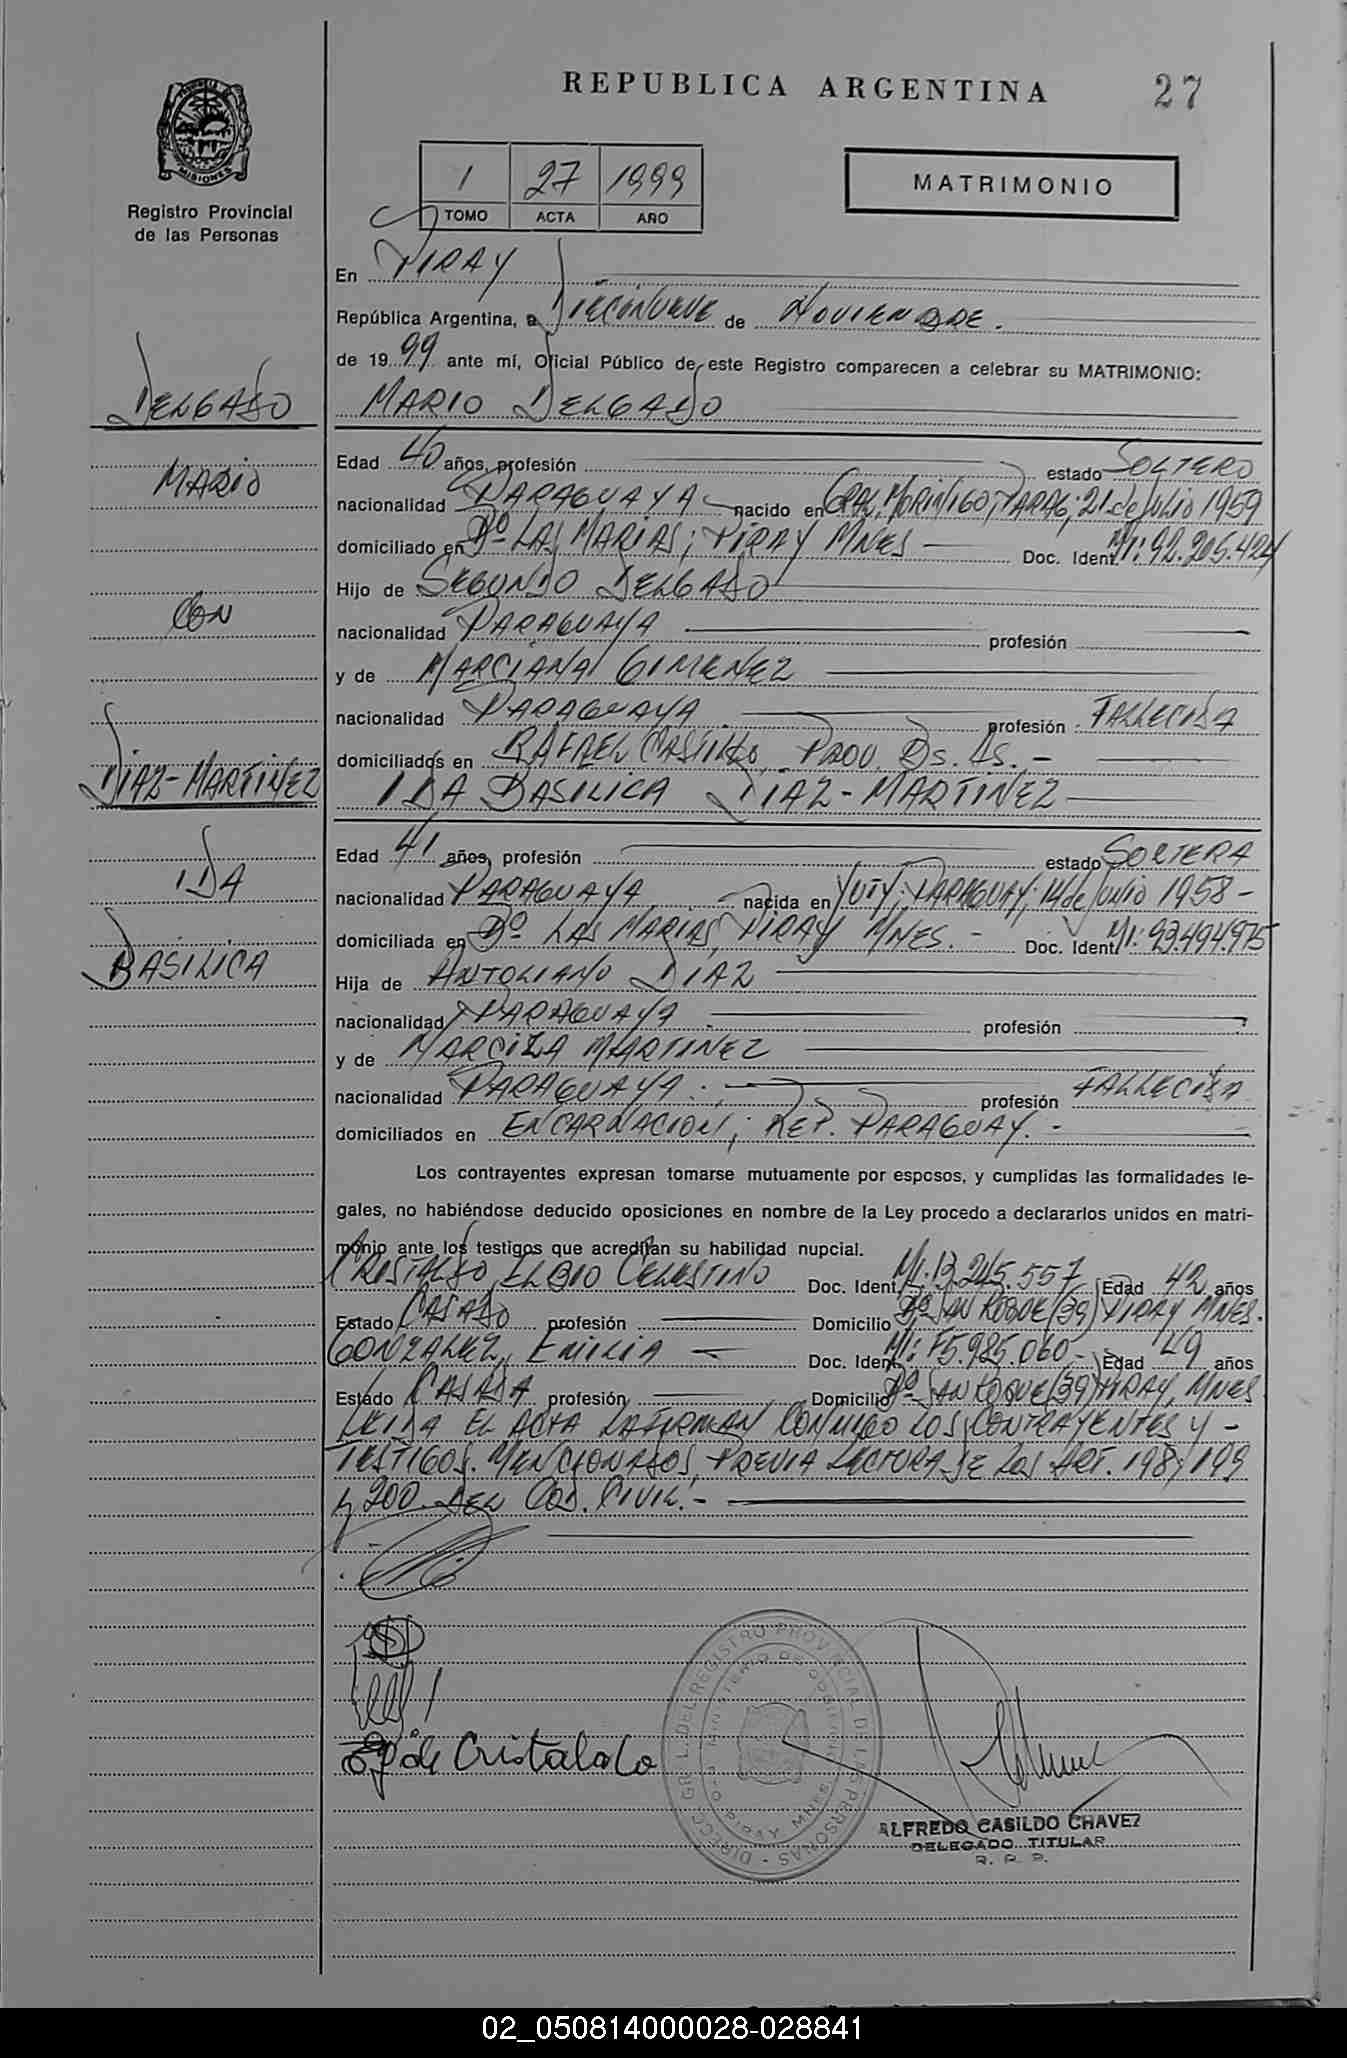 REPUBLICA ARGENTINA
27
PROVINCIA DE
MISIONES
Registro Provincial
de las Personas
1 27 1999
TOMO ACTA AÑO
MATRIMONIO
En PIRAY
República Argentina, a DIECINUEVE de NOVIEMBRE.
de 1999 ante mí, Oficial Público de este Registro comparecen a celebrar su MATRIMONIO:
DELGADO
MARIO DELGADO
Edad 40 años, profesión estado SOLTERO
MARIO
nacionalidad PARAGUAYA nacido en GRAL. MORINIGO, PARAG; 21 de Julio 1959
domiciliado en Bº LAS MARIAS; PIRAY MNES - Doc. Ident. MI: 92.205.424
Hijo de SEGUNDO DELGADO
CON
nacionalidad PARAGUAYA profesión
y de MARCIANA GIMENEZ
nacionalidad PARAGUAYA profesión FALLECIDA
domiciliados en RAFAEL CASTILLO, PROV. Bs. As. -
DIAZ-MARTINEZ
IDA BASILICA DIAZ-MARTINEZ
Edad 41 años, profesión estado SOLTERA
IDA
nacionalidad PARAGUAYA nacida en YUTY; PARAGUAY; 14 de Junio 1958-
domiciliada en Bº LAS MARIAS, PIRAY MNES. - Doc. Ident. MI: 93.494.975
BASILICA
Hija de ANTOLIANO DIAZ
nacionalidad PARAGUAYA profesión
y de MARCILA MARTINEZ
nacionalidad PARAGUAYA.; profesión FALLECIDA
domiciliados en ENCARNACION; REP. PARAGUAY. -
Los contrayentes expresan tomarse mutuamente por esposos, y cumplidas las formalidades le-
gales, no habiéndose deducido oposiciones en nombre de la Ley procedo a declararlos unidos en matri-
monio ante los testigos que acreditan su habilidad nupcial.
CRISTALDO, ELBIO CELESTINO Doc. Ident. MI: 13.245.557 Edad 42 años
Estado CASADO profesión Domicilio Bº SAN ROQUE (39) PIRAY MNES.
GONZALEZ, EMILIA - Doc. Ident. MI: F5.985.060.- Edad 49 años
Estado CASADA profesión Domicilio Bº SAN ROQUE (39) PIRAY, MNES
LEIDA EL ACTA LA FIRMAN CONMIGO LOS CONTRAYENTES Y -
TESTIGOS MENCIONADOS, PREVIA LECTURA DE LOS ART. 198; 199
y 200 DEL COD. CIVIL. -
de Cristaldo
DIRECC. GRAL. DEL REGISTRO PROVINCIAL DE LAS PERSONAS
MINISTERIO DE GOBIERNO
PIRAY MNES
ALFREDO CASILDO CHAVEZ
DELEGADO TITULAR
R. P. P.
02_050814000028-028841